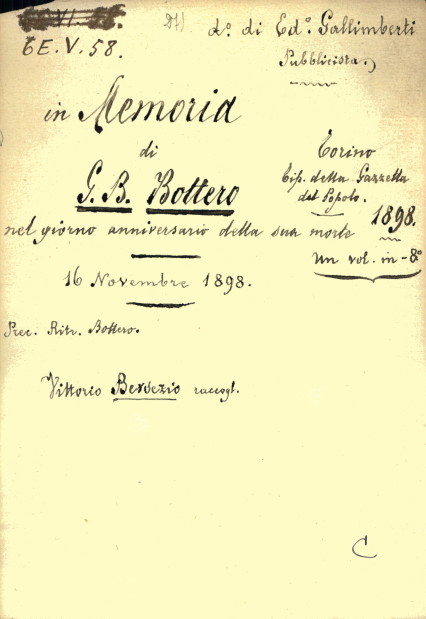 6E.V.58.
d.º di Ed.º Gallimberti
Pubblicista.
in Memoria
di
G. B. Bottero
nel giorno anniversario della sua morte
16 Novembre 1898.
Torino
Tip. della Gazzetta
del Popolo.
1898.
Un vol. in-8º
Prec. Ritr. Bottero.
Vittorio Bersezio raccogl.
C